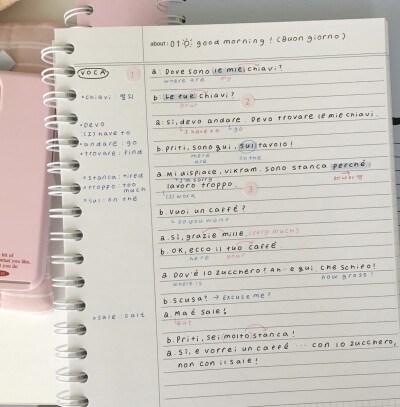 about: 01 good morning! (Buon giorno)
VOCA
1
a: Dove sono le mie chiavi?
where are my
• chiavi: 열쇠
b. Le tue chiavi?
your
2
a: Sì, devo andare. Devo trovare le mie chiavi.
I have to go
• Devo
: (I) have to
• andare: go
• trovare: find
b. Priti, sono qui, sul tavolo!
here are on the
a. Mi dispiace, Vikram. Sono stanca perché
I'm sorry
lavoro troppo.
(I) work
3
• stanca: tired
• troppo: too much
• sul: on the
b. Vuoi un caffè?
Do you want
a. Sì, grazie mille. (very much)
b. OK, ecco il tuo caffè.
here your
a. Dov'è lo zucchero? Ah è qui, che schifo!
where is how gross!
b. Scusa? → Excuse me?
• sale: salt
a. Ma è sale!
But
b. Priti, sei molto stanca!
a. Sì, e vorrei un caffè ... con lo zucchero,
non con il sale!